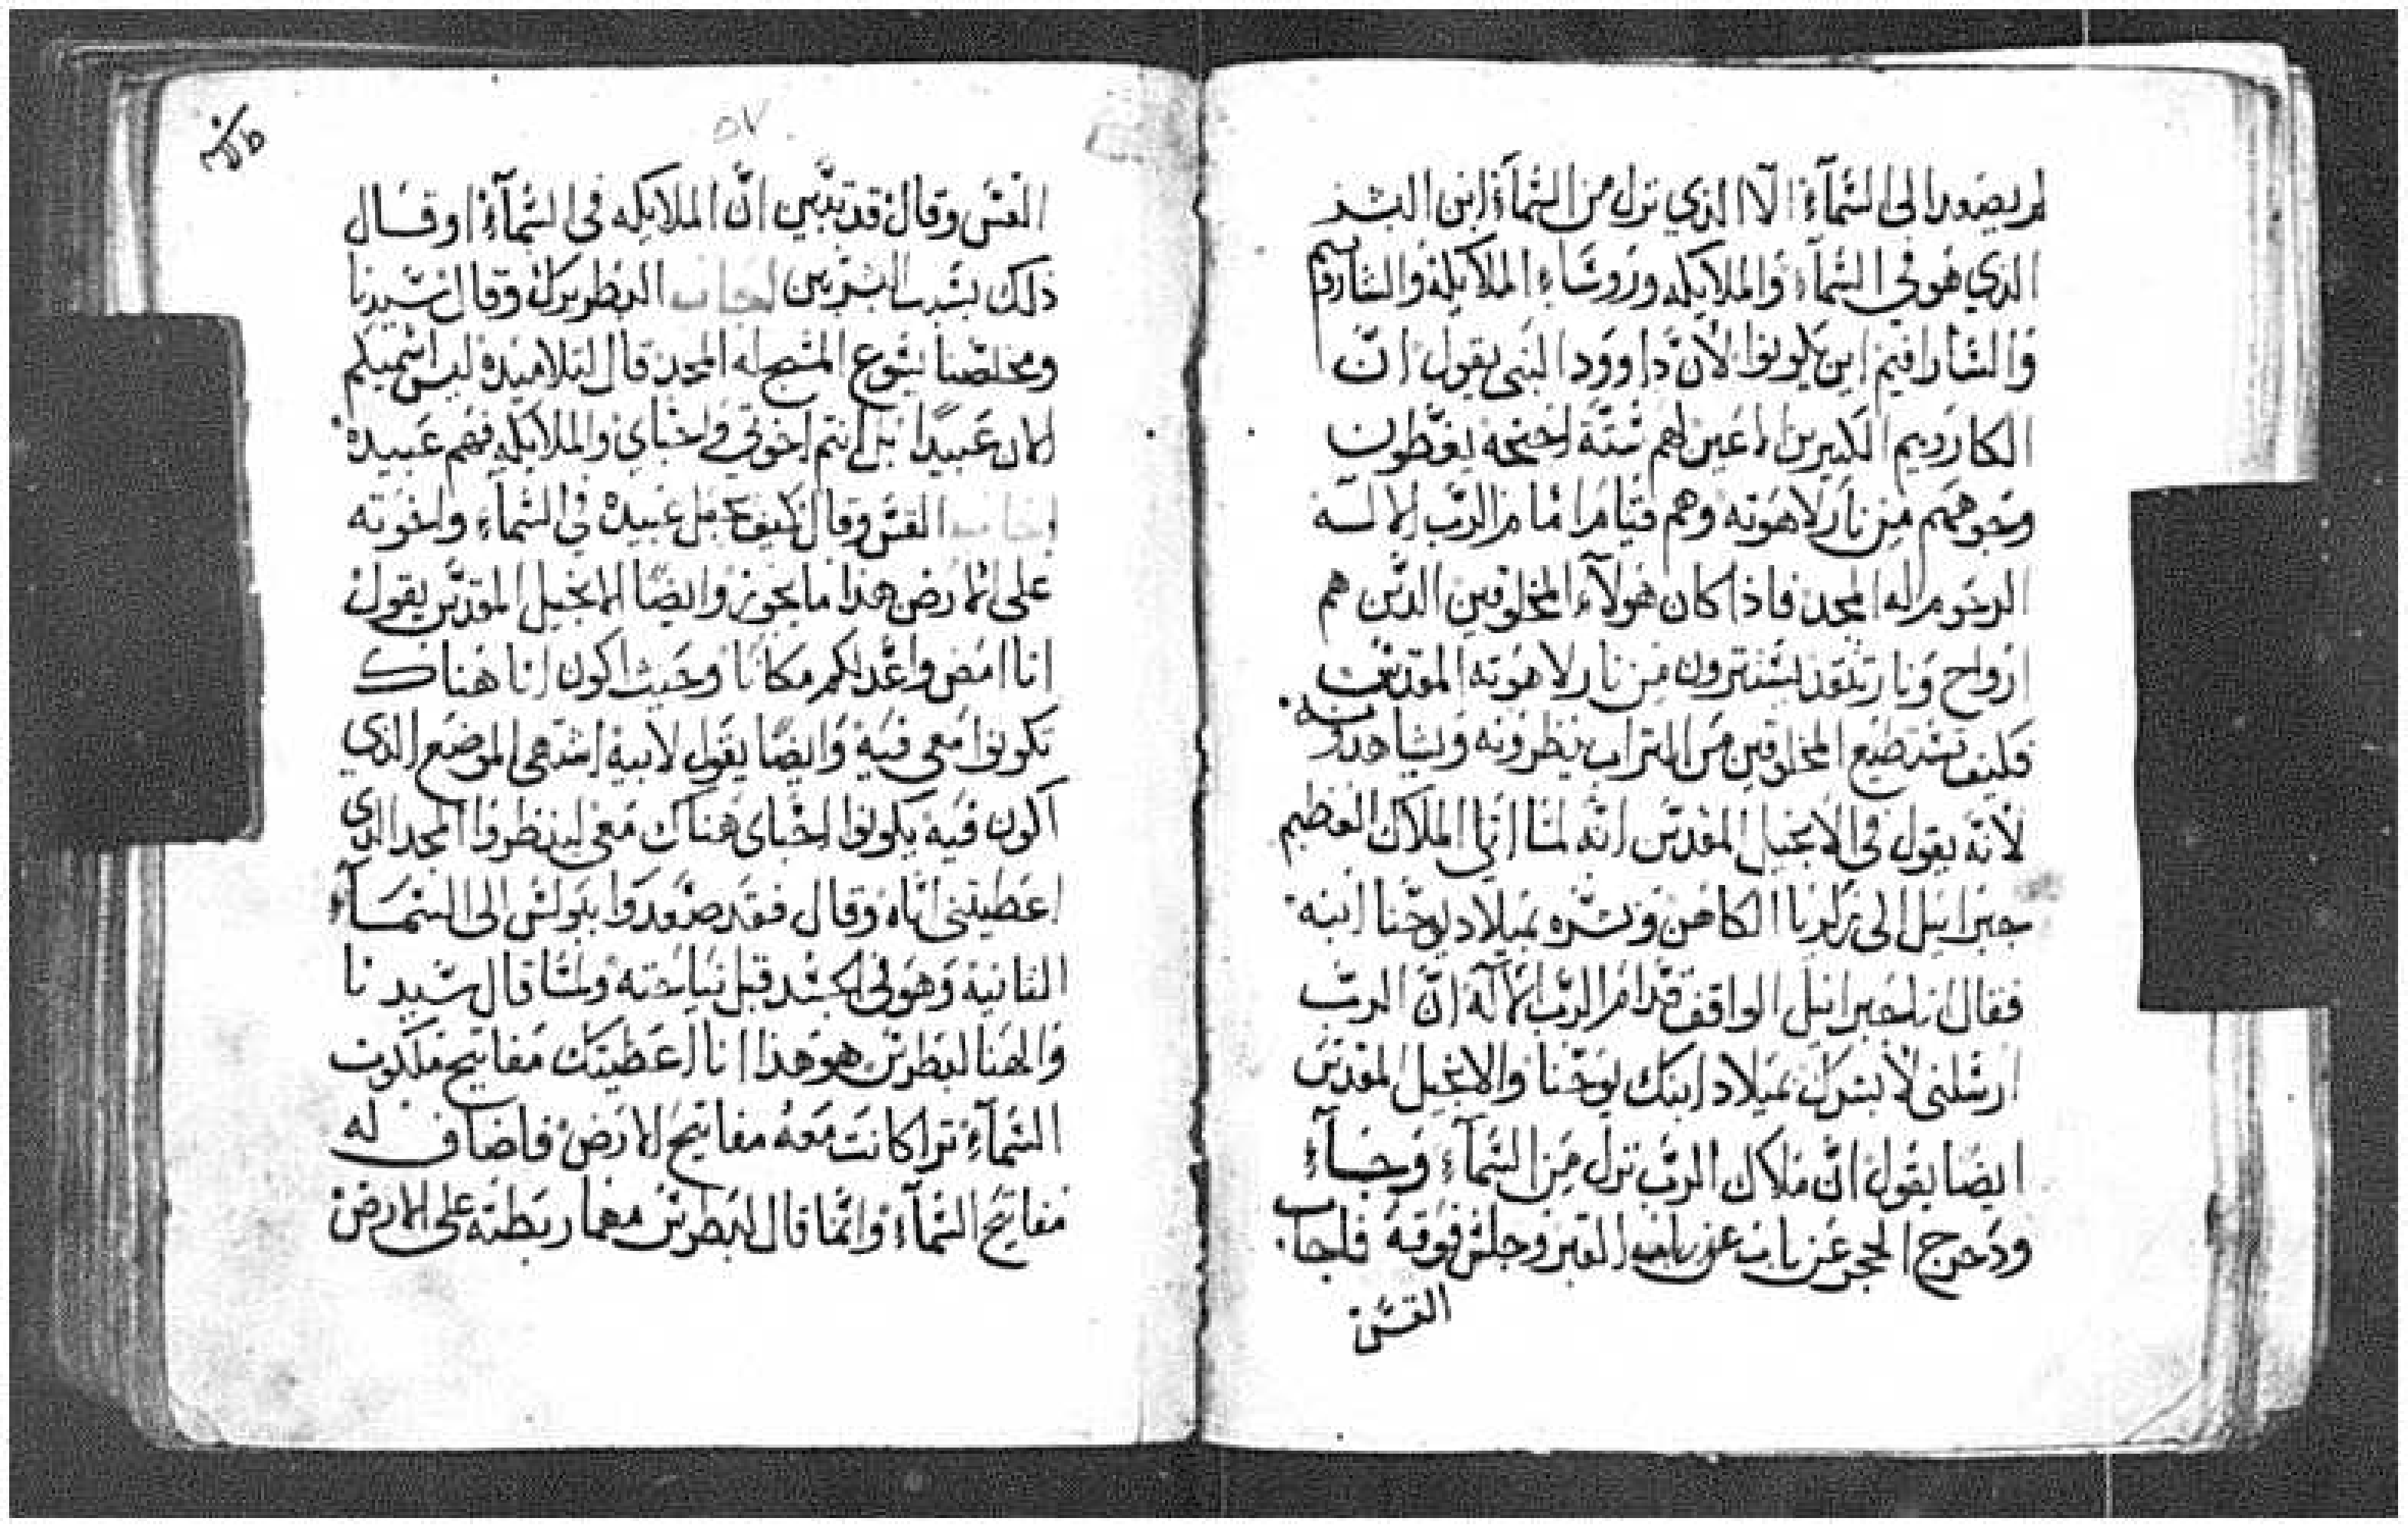 لم يصعد الى السَّمآء الّا الذي نزل من السَّمآء ابن البشر
الذي هو في السَّمآء والملايكه وروسَاء الملايكة والشارُوبيم
والسَّارافيم اين يكونوا لأنّ داوود النبي يقول انّ
الكاروبيم الكتيرين الاعين لهم ستّة اجنحه يغطون
وجوههم من نار لاهوته وهم قيام امام الرَّب الإلاه
الرحوم له المجد فاذا كان هولآء المخلوقين الدين هم
ارواح ونار تتقد يستترون من نار لاهوته المقدسة
فكيف تستطيع المخلوقين من التراب ينظرونه ويشاهدونه
لأنّه يقول في الانجيل المقدّس انّه لمّا اتي الملاك العظيم
جبرائيل الى زكريا الكاهن وبشّره بميلاد يوحّنا ابنه
فقال انا جبرائيل الواقف قدام الرّب الالآه انّ الربّ
ارسلني لأبشرك بميلاد ابنك يوحّنا والانجيل المقدّس
ايضًا يقول انّ ملاك الرب نزل من السَّمآء وجآء
ودحرج الحجر عن باب عن باب القبر وجلس فوقه فاجاب
القسّ
٥٧
القسّ وقال قد تبيّن انّ الملايكه في السَّمآء اوقال
ذلك بسبب البشريين اجاب البطريرك وقال سيدنا
ومخلصنا يسوع المسيح له المجد قال لتلاميذه ليس اسميكم
الان عبيدًا بل انتم اخوتي واحباي والملايكه فهم عبيده
اجاب القسّ وقال كيف يجعل عبيده في السَّماء واخوته
على الأرض هذا ما يجوز وايضًا الانجيل المقدّس يقول
انا امض واعّد لكم مكانًا وحيث اكون انا هناك
تكونوا معي فيه وايضًا يقول لابيه اشتهي الموضع الذي
اكون فيه يكونوا احباي هناك معي لينظروا المجد الذي
اعطيتني ايّاه وقال فقد صعدوا بولس الى السمآء
التانية وهو في الجسد قبل نياحته ولمّا قال سيدنا
والهنا لبطرس هوهذا انا اعطيتك مفاتيح ملكوت
السَّمآء ترا كانت معه مفاتيح الارض فاضاف له
مفاتيح السَّمآء وانّما قال لبطرس مهما ربطته على الارض